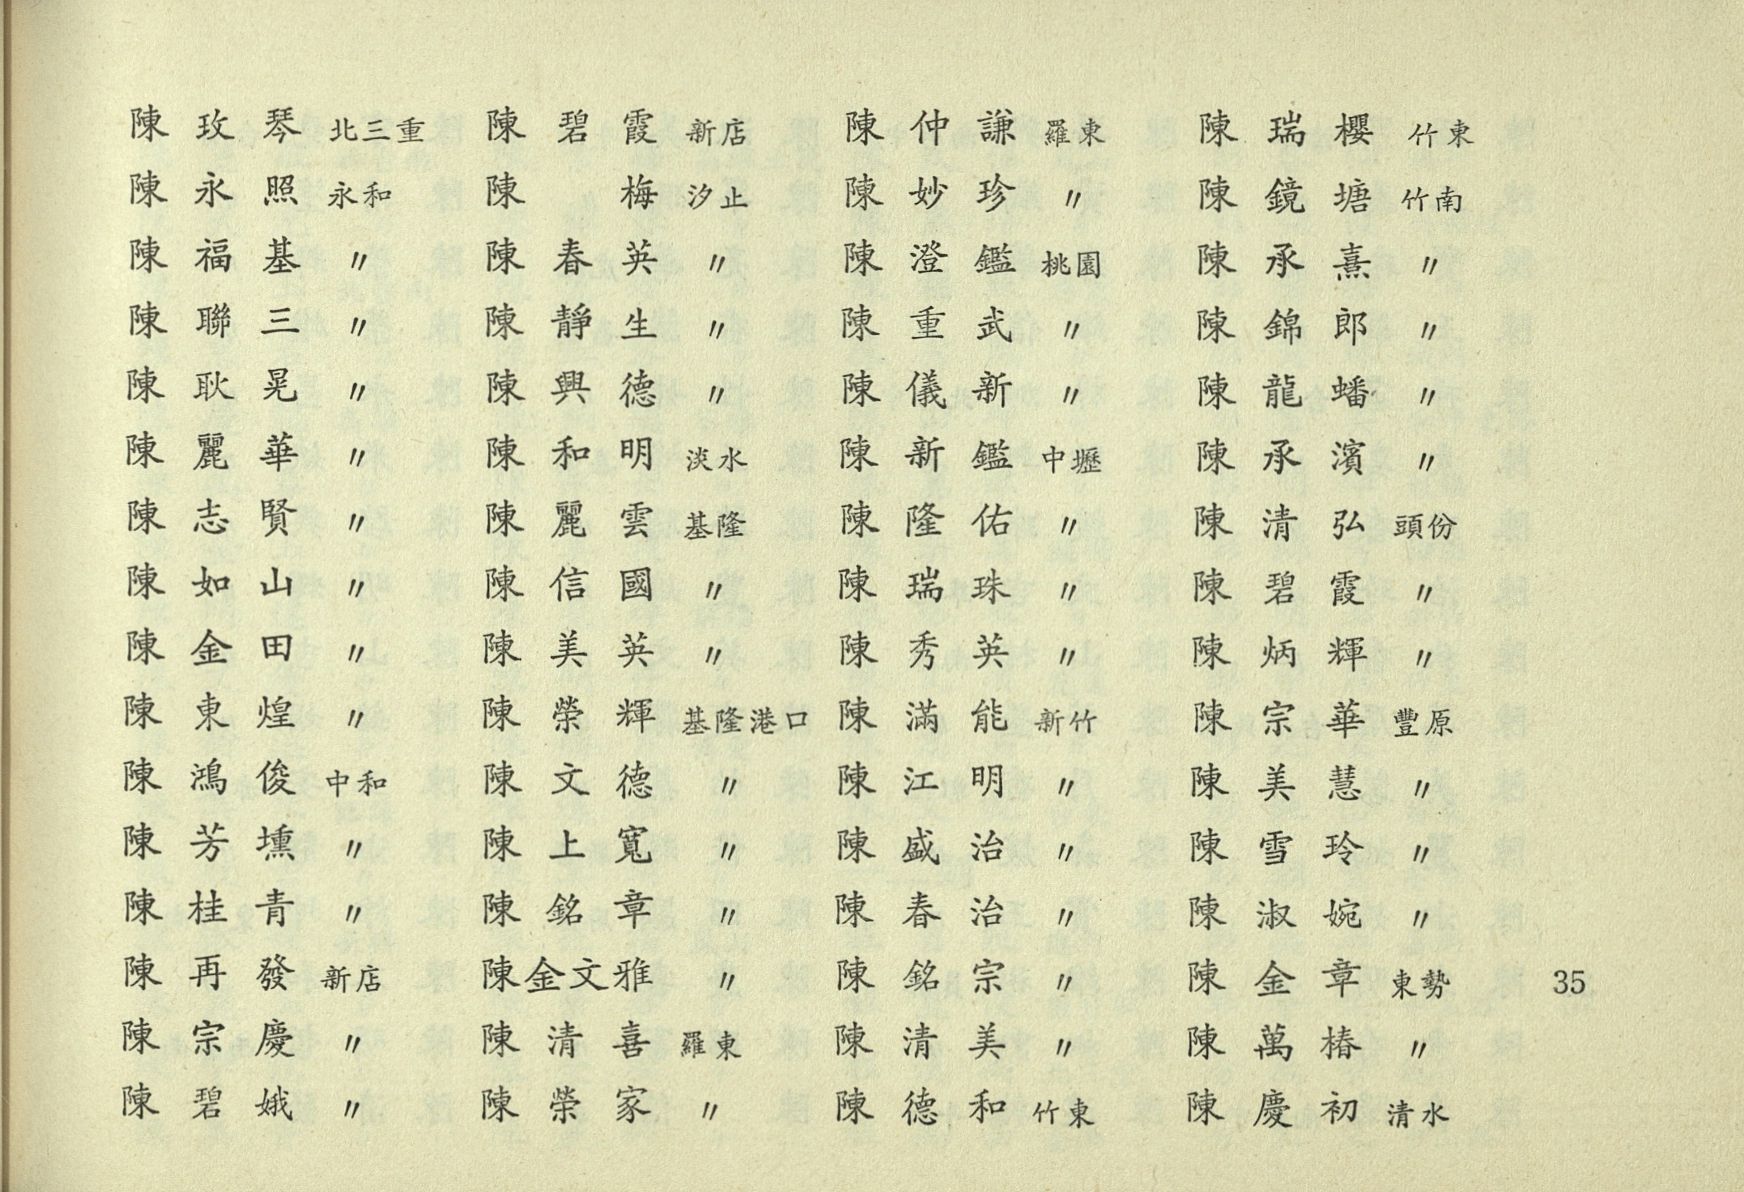 陳玫琴 北三重
陳永照 永和
陳福基 〃
陳聯三 〃
陳耿晃 〃
陳麗華 〃
陳志賢 〃
陳如山 〃
陳金田 〃
陳東煌 〃
陳鴻俊 中和
陳芳壎 〃
陳桂青 〃
陳再發 新店
陳宗慶 〃
陳碧娥 〃
陳碧霞 新店
陳梅 汐止
陳春英 〃
陳靜生 〃
陳興德 〃
陳和明 淡水
陳麗雲 基隆
陳信國 〃
陳美英 〃
陳榮輝 基隆港口
陳文德 〃
陳上寬 〃
陳銘章 〃
陳金文雅 〃
陳清喜 羅東
陳榮家 〃
陳仲謙 羅東
陳妙珍 〃
陳澄鑑 桃園
陳重武 〃
陳儀新 〃
陳新鑑 中壢
陳隆佑 〃
陳瑞珠 〃
陳秀英 〃
陳滿能 新竹
陳江明 〃
陳盛治 〃
陳春治 〃
陳銘宗 〃
陳清美 〃
陳德和 竹東
陳瑞櫻 竹東
陳鏡塘 竹南
陳承熹 〃
陳錦郎 〃
陳龍蟠 〃
陳承濱 〃
陳清弘 頭份
陳碧霞 〃
陳炳輝 〃
陳宗華 豐原
陳美慧 〃
陳雪玲 〃
陳淑婉 〃
陳金章 東勢
陳萬椿 〃
陳慶初 清水
35